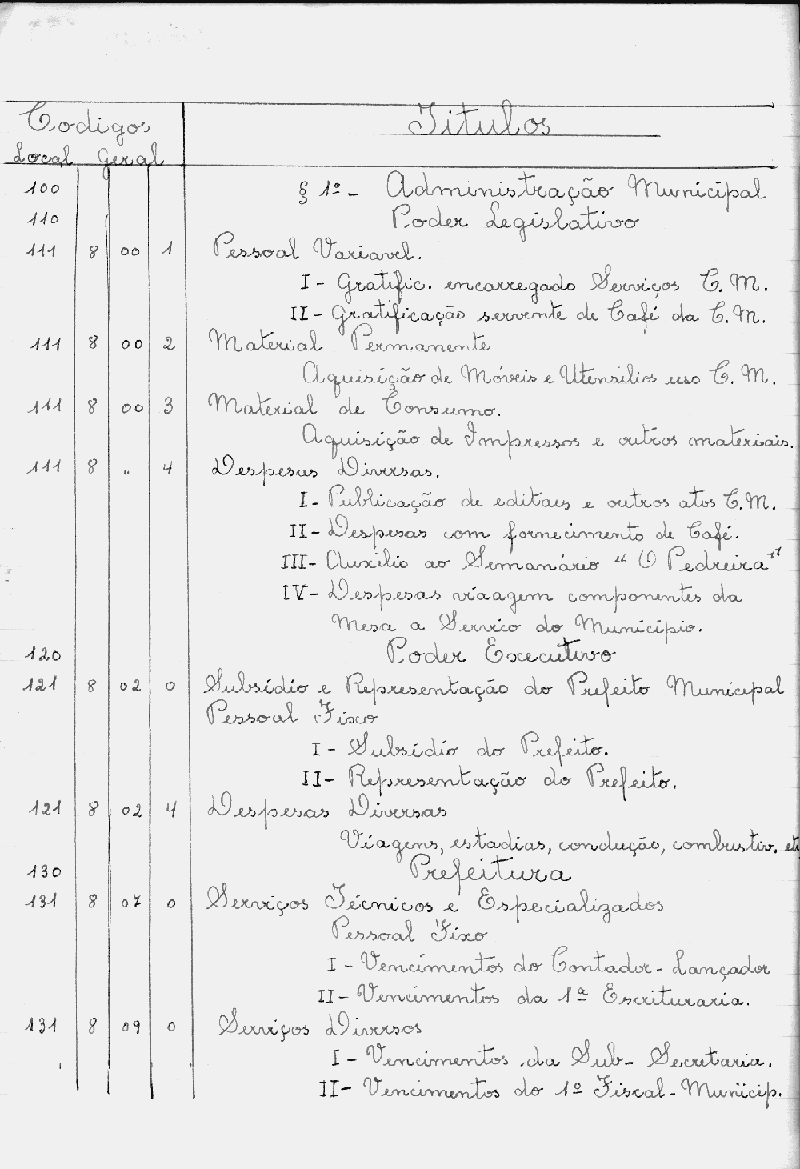 Codigos Titulos
Local Geral
100 § 1º - Administração Municipal.
110 Poder Legislativo
111 8 00 1 Pessoal Variavel.
I - Gratific. encarregado Serviços C. M.
II - Gratificação servente de Café da C. M.
111 8 00 2 Material Permanente
Aquisição de Móveis e Utensilios uso C. M.
111 8 00 3 Material de Consumo.
Aquisição de Impressos e outros materiais.
111 8 " 4 Despesas Diversas.
I - Publicação de editaes e outros atos C. M.
II - Despesas com fornecimento de Café.
III - Auxílio ao Semanário "O Pedreira"
IV - Despesas viaagem componentes da
Mesa a Servico do Município.
120 Poder Executivo
121 8 02 0 Subsídio e Representação do Prefeito Municipal
Pessoal Fixo
I - Subsídio do Prefeito.
II - Representação do Prefeito.
121 8 02 4 Despesas Diversas
Viagens, estadias, condução, combustiv. etc
130 Prefeitura
131 8 07 0 Serviços Técnicos e Especializados
Pessoal Fixo
I - Vencimentos do Contador - Lançador
II - Vencimentos da 1ª Escrituraria.
131 8 09 0 Serviços Diversos
I - Vencimentos da Sub - Secretaria.
II - Vencimentos do 1º Fiscal - Municip.